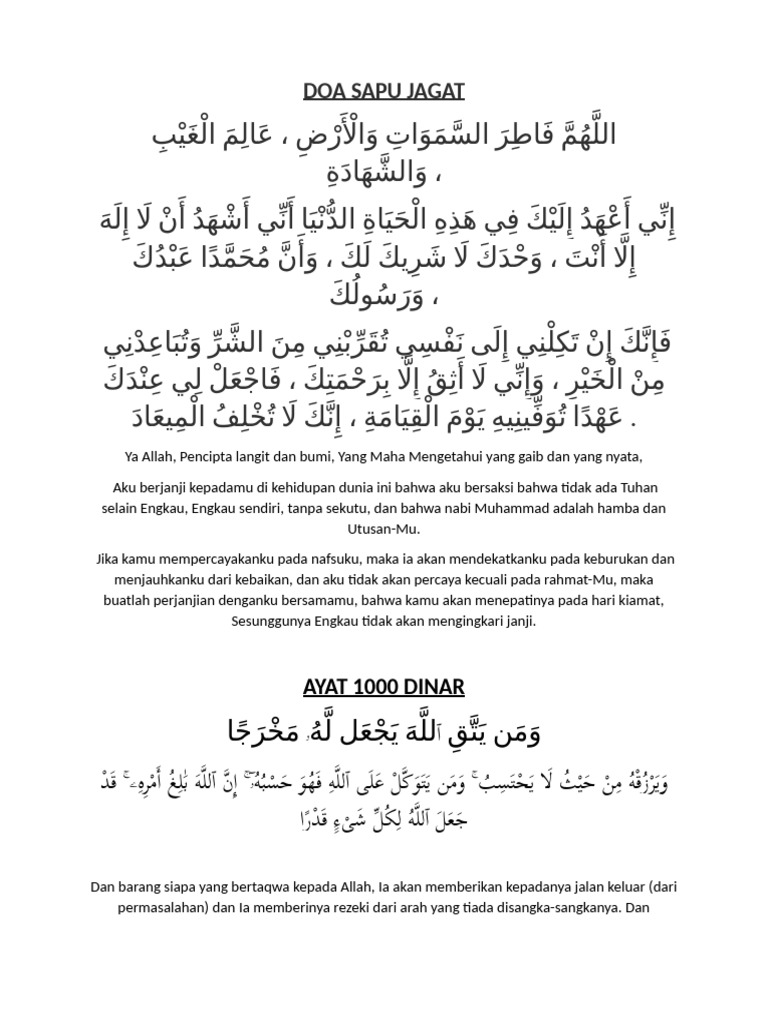 DOA SAPU JAGAT
اللَّهُمَّ فَاطِرَ السَّمَوَاتِ وَالْأَرْضِ ، عَالِمَ الْغَيْبِ
وَالشَّهَادَةِ ،
إِنِّي أَعْهَدُ إِلَيْكَ فِي هَذِهِ الْحَيَاةِ الدُّنْيَا أَنِّي أَشْهَدُ أَنْ لَا إِلَهَ
إِلَّا أَنْتَ ، وَحْدَكَ لَا شَرِيكَ لَكَ ، وَأَنَّ مُحَمَّدًا عَبْدُكَ
وَرَسُولُكَ ،
فَإِنَّكَ إِنْ تَكِلْنِي إِلَى نَفْسِي تُقَرِّبْنِي مِنَ الشَّرِّ وَتُبَاعِدْنِي
مِنْ الْخَيْرِ ، وَإِنِّي لَا أَثِقُ إِلَّا بِرَحْمَتِكَ ، فَاجْعَلْ لِي عِنْدَكَ
عَهْدًا تُوَفِّينِيهِ يَوْمَ الْقِيَامَةِ ، إِنَّكَ لَا تُخْلِفُ الْمِيعَادَ .
Ya Allah, Pencipta langit dan bumi, Yang Maha Mengetahui yang gaib dan yang nyata,
Aku berjanji kepadamu di kehidupan dunia ini bahwa aku bersaksi bahwa tidak ada Tuhan
selain Engkau, Engkau sendiri, tanpa sekutu, dan bahwa nabi Muhammad adalah hamba dan
Utusan-Mu.
Jika kamu mempercayakanku pada nafsuku, maka ia akan mendekatkanku pada keburukan dan
menjauhkanku dari kebaikan, dan aku tidak akan percaya kecuali pada rahmat-Mu, maka
buatlah perjanjian denganku bersamamu, bahwa kamu akan menepatinya pada hari kiamat,
Sesunggunya Engkau tidak akan mengingkari janji.
AYAT 1000 DINAR
وَمَن يَتَّقِ ٱللَّهَ يَجْعَل لَّهُۥ مَخْرَجًا
وَيَرْزُقْهُ مِنْ حَيْثُ لَا يَحْتَسِبُ ۚ وَمَن يَتَوَكَّلْ عَلَى ٱللَّهِ فَهُوَ حَسْبُهُۥٓ ۚ إِنَّ ٱللَّهَ بَٰلِغُ أَمْرِهِۦ ۚ قَدْ
جَعَلَ ٱللَّهُ لِكُلِّ شَىْءٍ قَدْرًا
Dan barang siapa yang bertaqwa kepada Allah, Ia akan memberikan kepadanya jalan keluar (dari
permasalahan) dan Ia memberinya rezeki dari arah yang tiada disangka-sangkanya. Dan